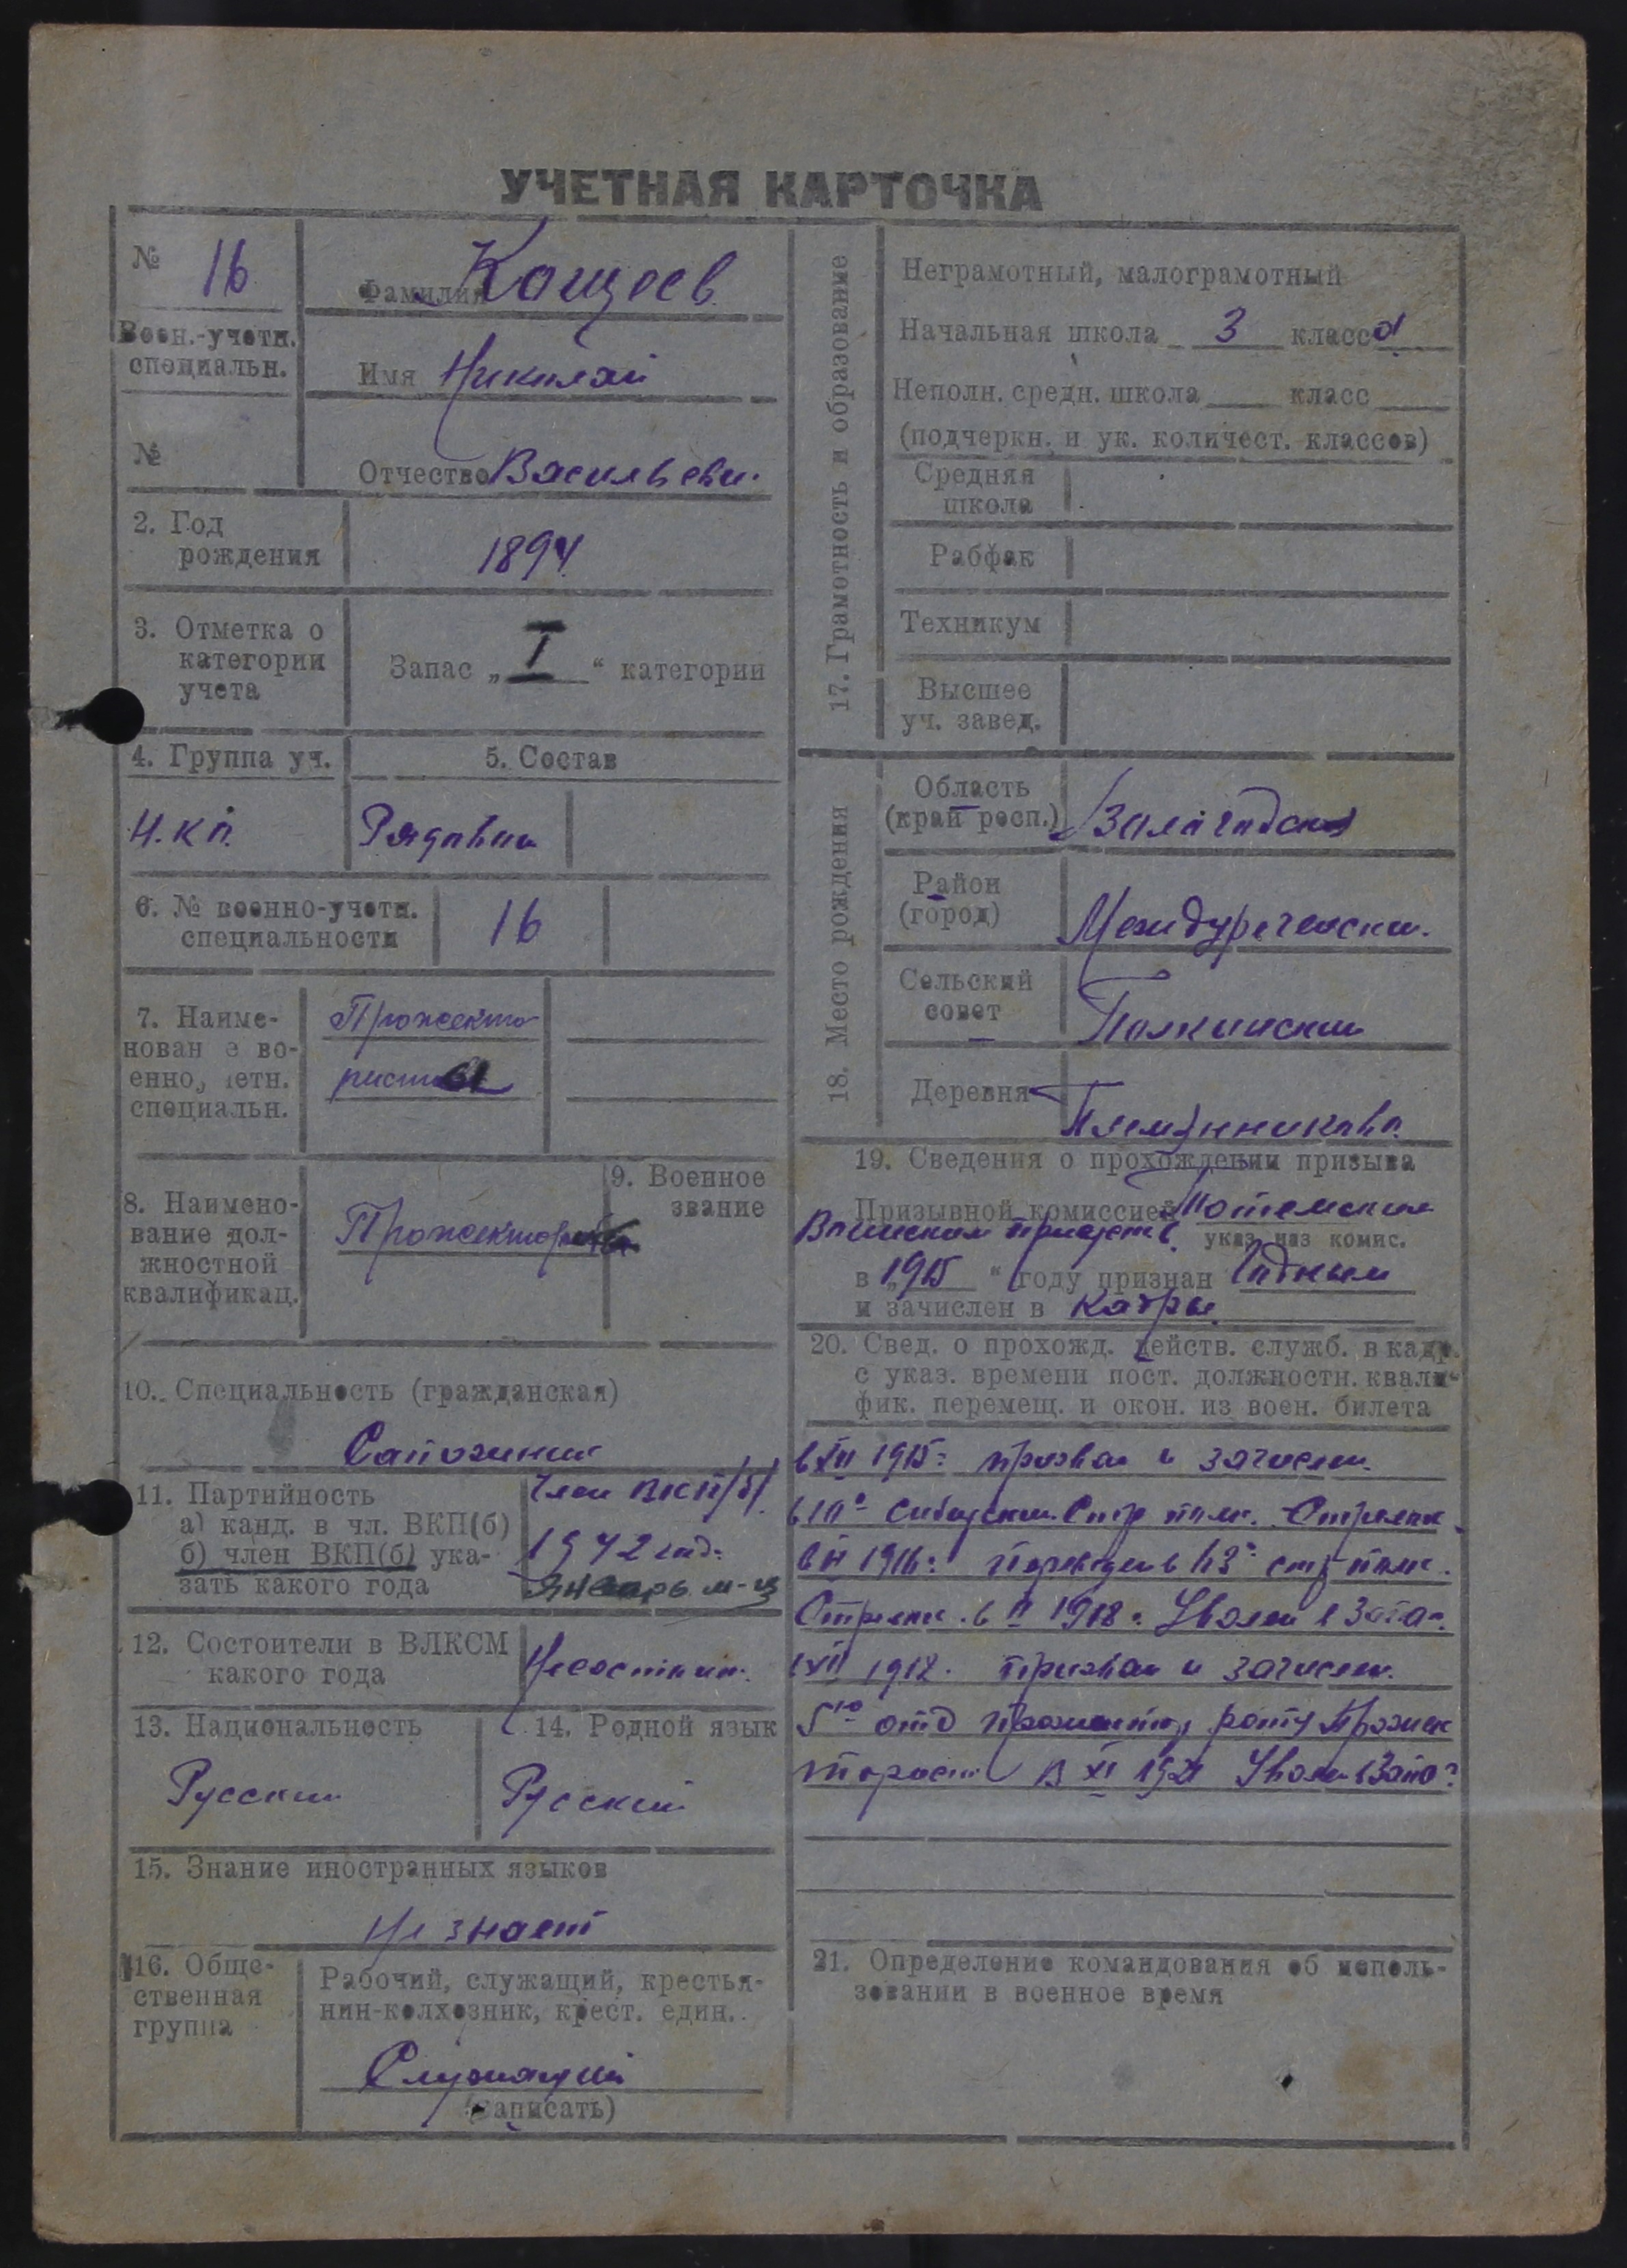 УЧЕТНАЯ КАРТОЧКА
№ 16
Воен.-учетн.
специальн.
№
Фамилия Кощеев
Имя Николай
Отчество Васильеви.
2. Год
рождения
1894
3. Отметка о
категории
учета
Запас „ I “ категории
4. Группа уч.
5. Состав
Н.К.П.
Рядовой
6. № военно-учетн.
специальности
16
7. Наиме-
нован е во-
енно, четн.
специальн.
Прожекто
ристы
8. Наимено-
вание дол-
жностной
квалификац.
Прожекторист
9. Военное
звание
10. Специальность (гражданская)
Сапожник
11. Партийность
а) канд. в чл. ВКП(б)
б) член ВКП(б) ука-
зать какого года
Член ВКП/б/
1942 год.
Январь м-ц
12. Состоители в ВЛКСМ
какого года
Несостоит.
13. Национальность
Русский
14. Родной язык
Русский
15. Знание иностранных языков
Не знает
16. Обще-
ственная
группа
Рабочий, служащий, крестья-
нин-колхозник, крест. един.
Служащий
(записать)
17. Грамотность и образование
Неграмотный, малограмотный
Начальная школа 3 класса
Неполн. средн. школа класс
(подчеркн. и ук. количест. классов)
Средняя
школа
Рабфак
Техникум
Высшее
уч. завед.
18. Место рождения
Область
(край респ.)
Вологодская
Район
(город)
Междуреченский.
Сельский
совет
Деревня
Племянниково.
19. Сведения о прохождении призыва
Призывной комиссией Тотемским
Воинским присутств. указ. наз комис.
в „ 1915 “ году признан Годным
и зачислен в Кадры.
20. Свед. о прохожд. действ. служб. в кадр.
с указ. времени пост. должностн. квали-
фик. перемещ. и окон. из воен. билета
в XII 1915: призван и зачислен.
в 10й Сибирский Стр полк. Стрелок.
1916: Переведен в 43й стр полк.
Стрелок. в II 1918: Уволен в Запа-
1918. призван и зачислен.
5ю отд прожектор роту Прожек
торист В XI 1921 Уволен в Запа-
21. Определение командования об исполь-
зовании в военное время